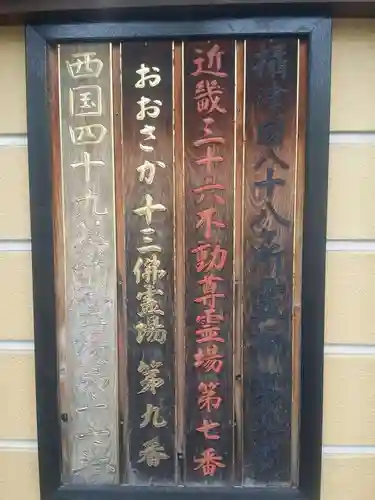 摂津国八十八
近畿三十六不動尊霊場第七番
おおさか十三佛霊場 第九番
西国四十九薬師霊場第十七番